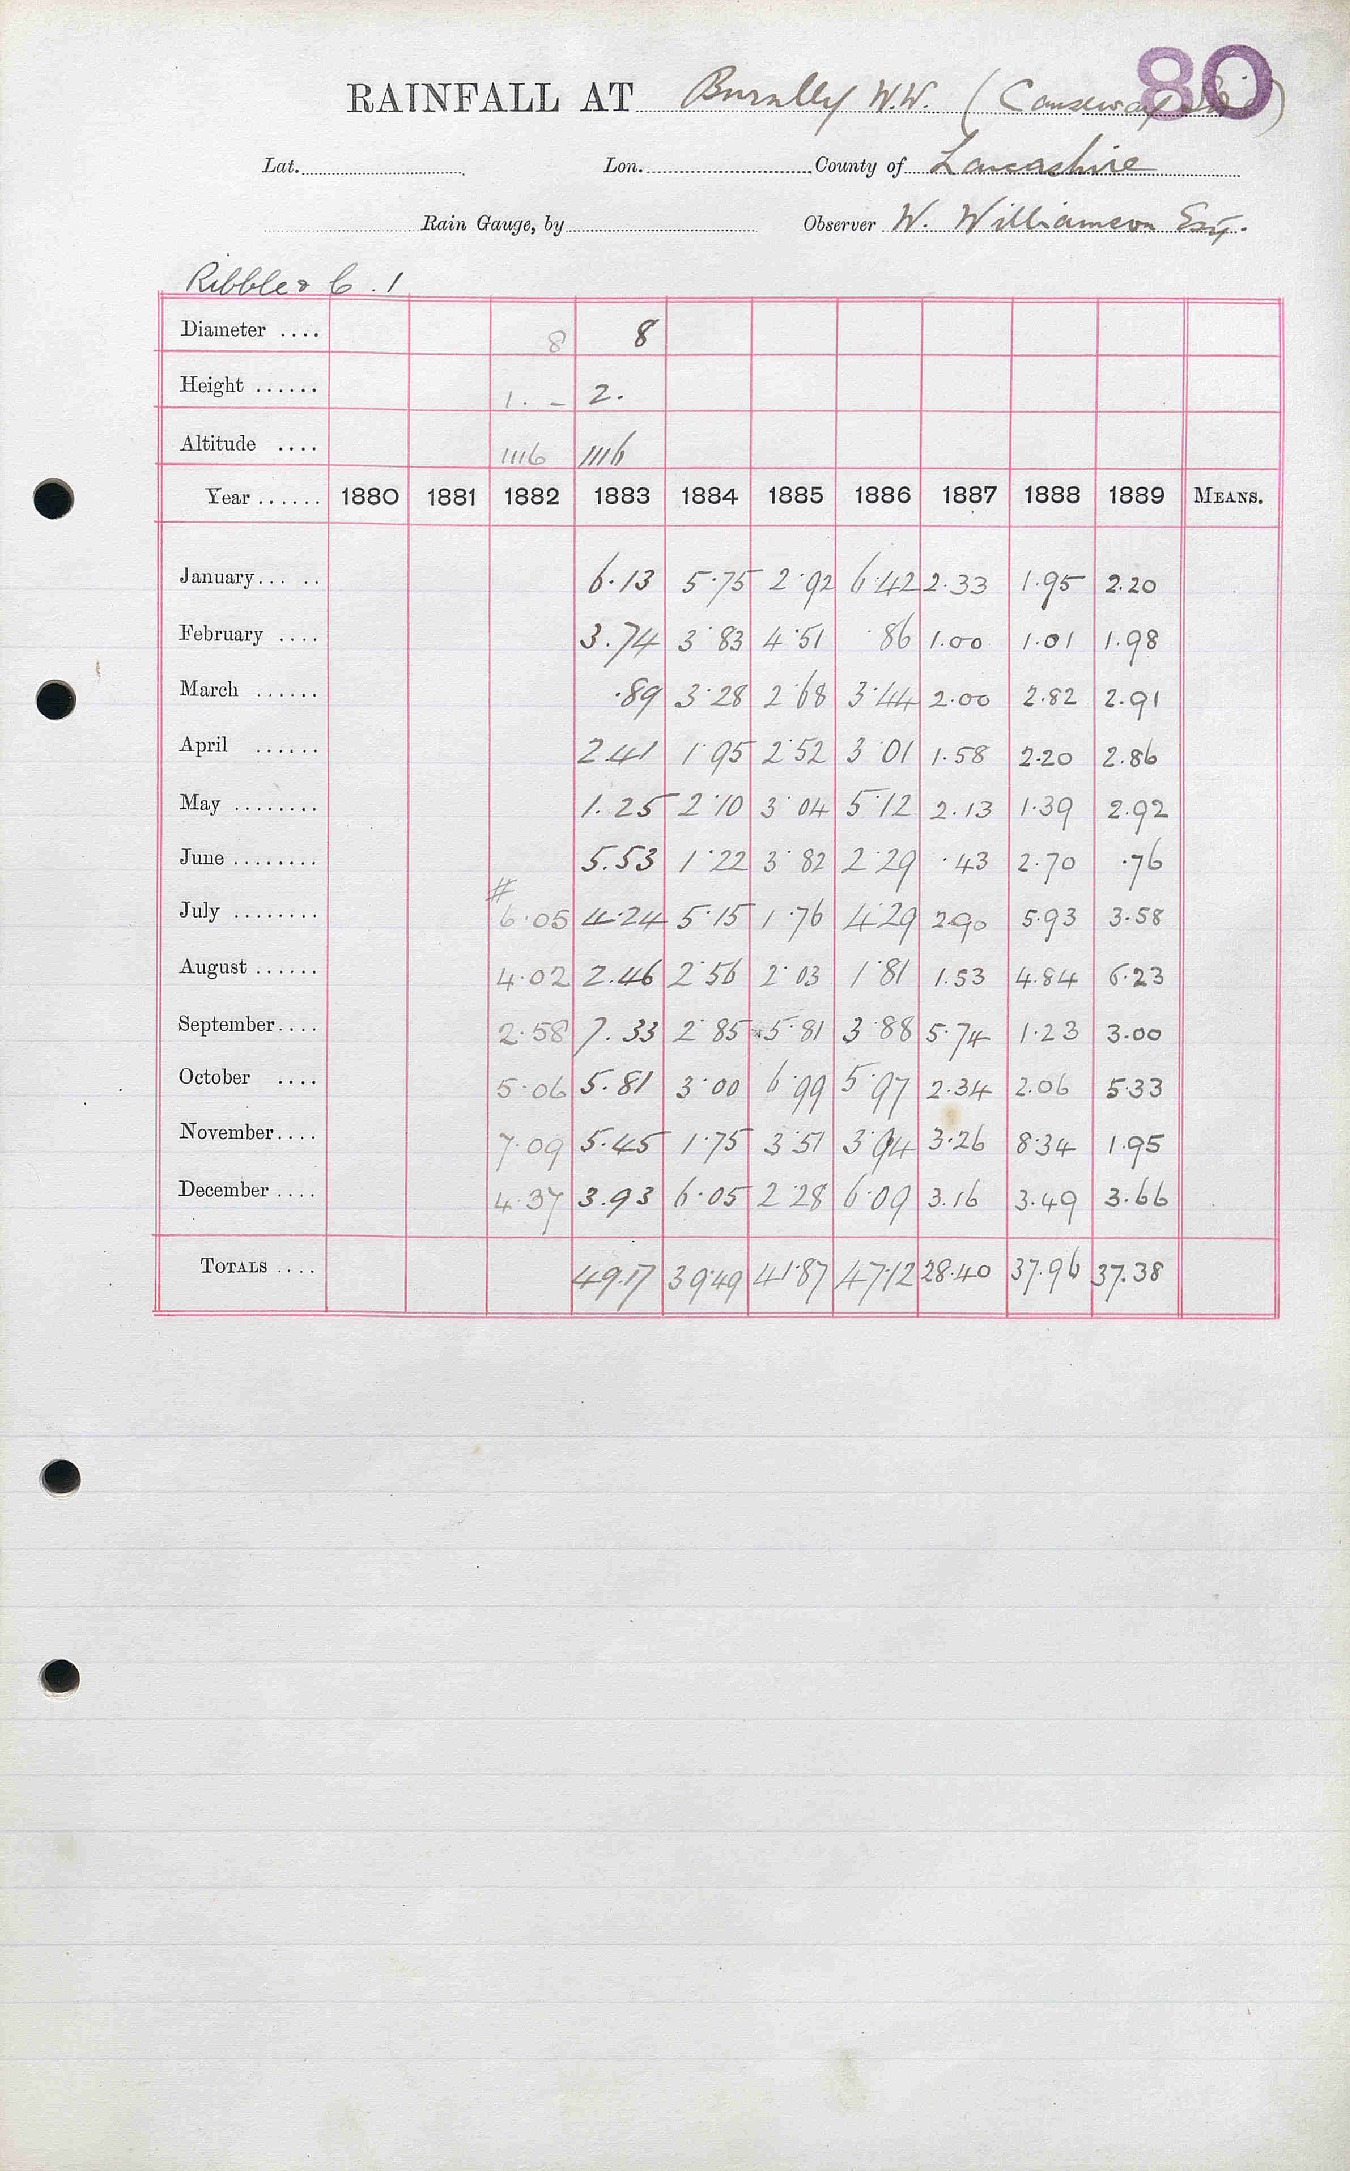 80
RAINFALL AT Burnley W.W. (Causeway )
Lat. Lon. County of Lancashire
Rain Gauge, by Observer W. Williamson Esq.
Ribble & C. 1
Diameter .... 8 8
Height ...... 1. – 2.
Altitude .... 1116 1116
Year ...... 1880 1881 1882 1883 1884 1885 1886 1887 1888 1889 MEANS.
January... .. 6.13 5.75 2.92 6.42 2.33 1.95 2.20
February .... 3.74 3.83 4.51 .86 1.00 1.01 1.98
March ...... .89 3.28 2.68 3.44 2.00 2.82 2.91
April ...... 2.41 1.95 2.52 3.01 1.58 2.20 2.86
May ........ 1.25 2.10 3.04 5.12 2.13 1.39 2.92
June ........ 5.53 1.22 3.82 2.29 .43 2.70 .76
#
July ........ 6.05 4.24 5.15 1.76 4.29 2.90 5.93 3.58
August ...... 4.02 2.46 2.56 2.03 1.81 1.53 4.84 6.23
September.... 2.58 7.33 2.85 5.81 3.88 5.74 1.23 3.00
October .... 5.06 5.81 3.00 6.99 5.97 2.34 2.06 5.33
November.... 7.09 5.45 1.75 3.51 3.94 3.26 8.34 1.95
December .... 4.37 3.93 6.05 2.28 6.09 3.16 3.49 3.66
TOTALS .... 49.17 39.49 41.87 47.12 28.40 37.96 37.38